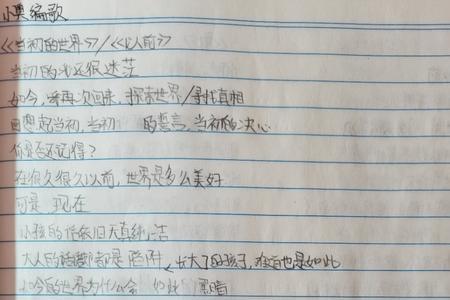 小奥编歌
《当初的世界》/《以前》
当初的我还很迷茫
如今,我再次回来,探索世界/寻找真相
回想起当初,当初 的誓言,当初的决心
你是否还记得?
在很久很久以前,世界是多么美好
可是 现在
小孩的 依旧天真纯洁
大人的 都是陷阱 长大了的孩子,难道也是如此
如今的世界为什么会 如此 黑暗